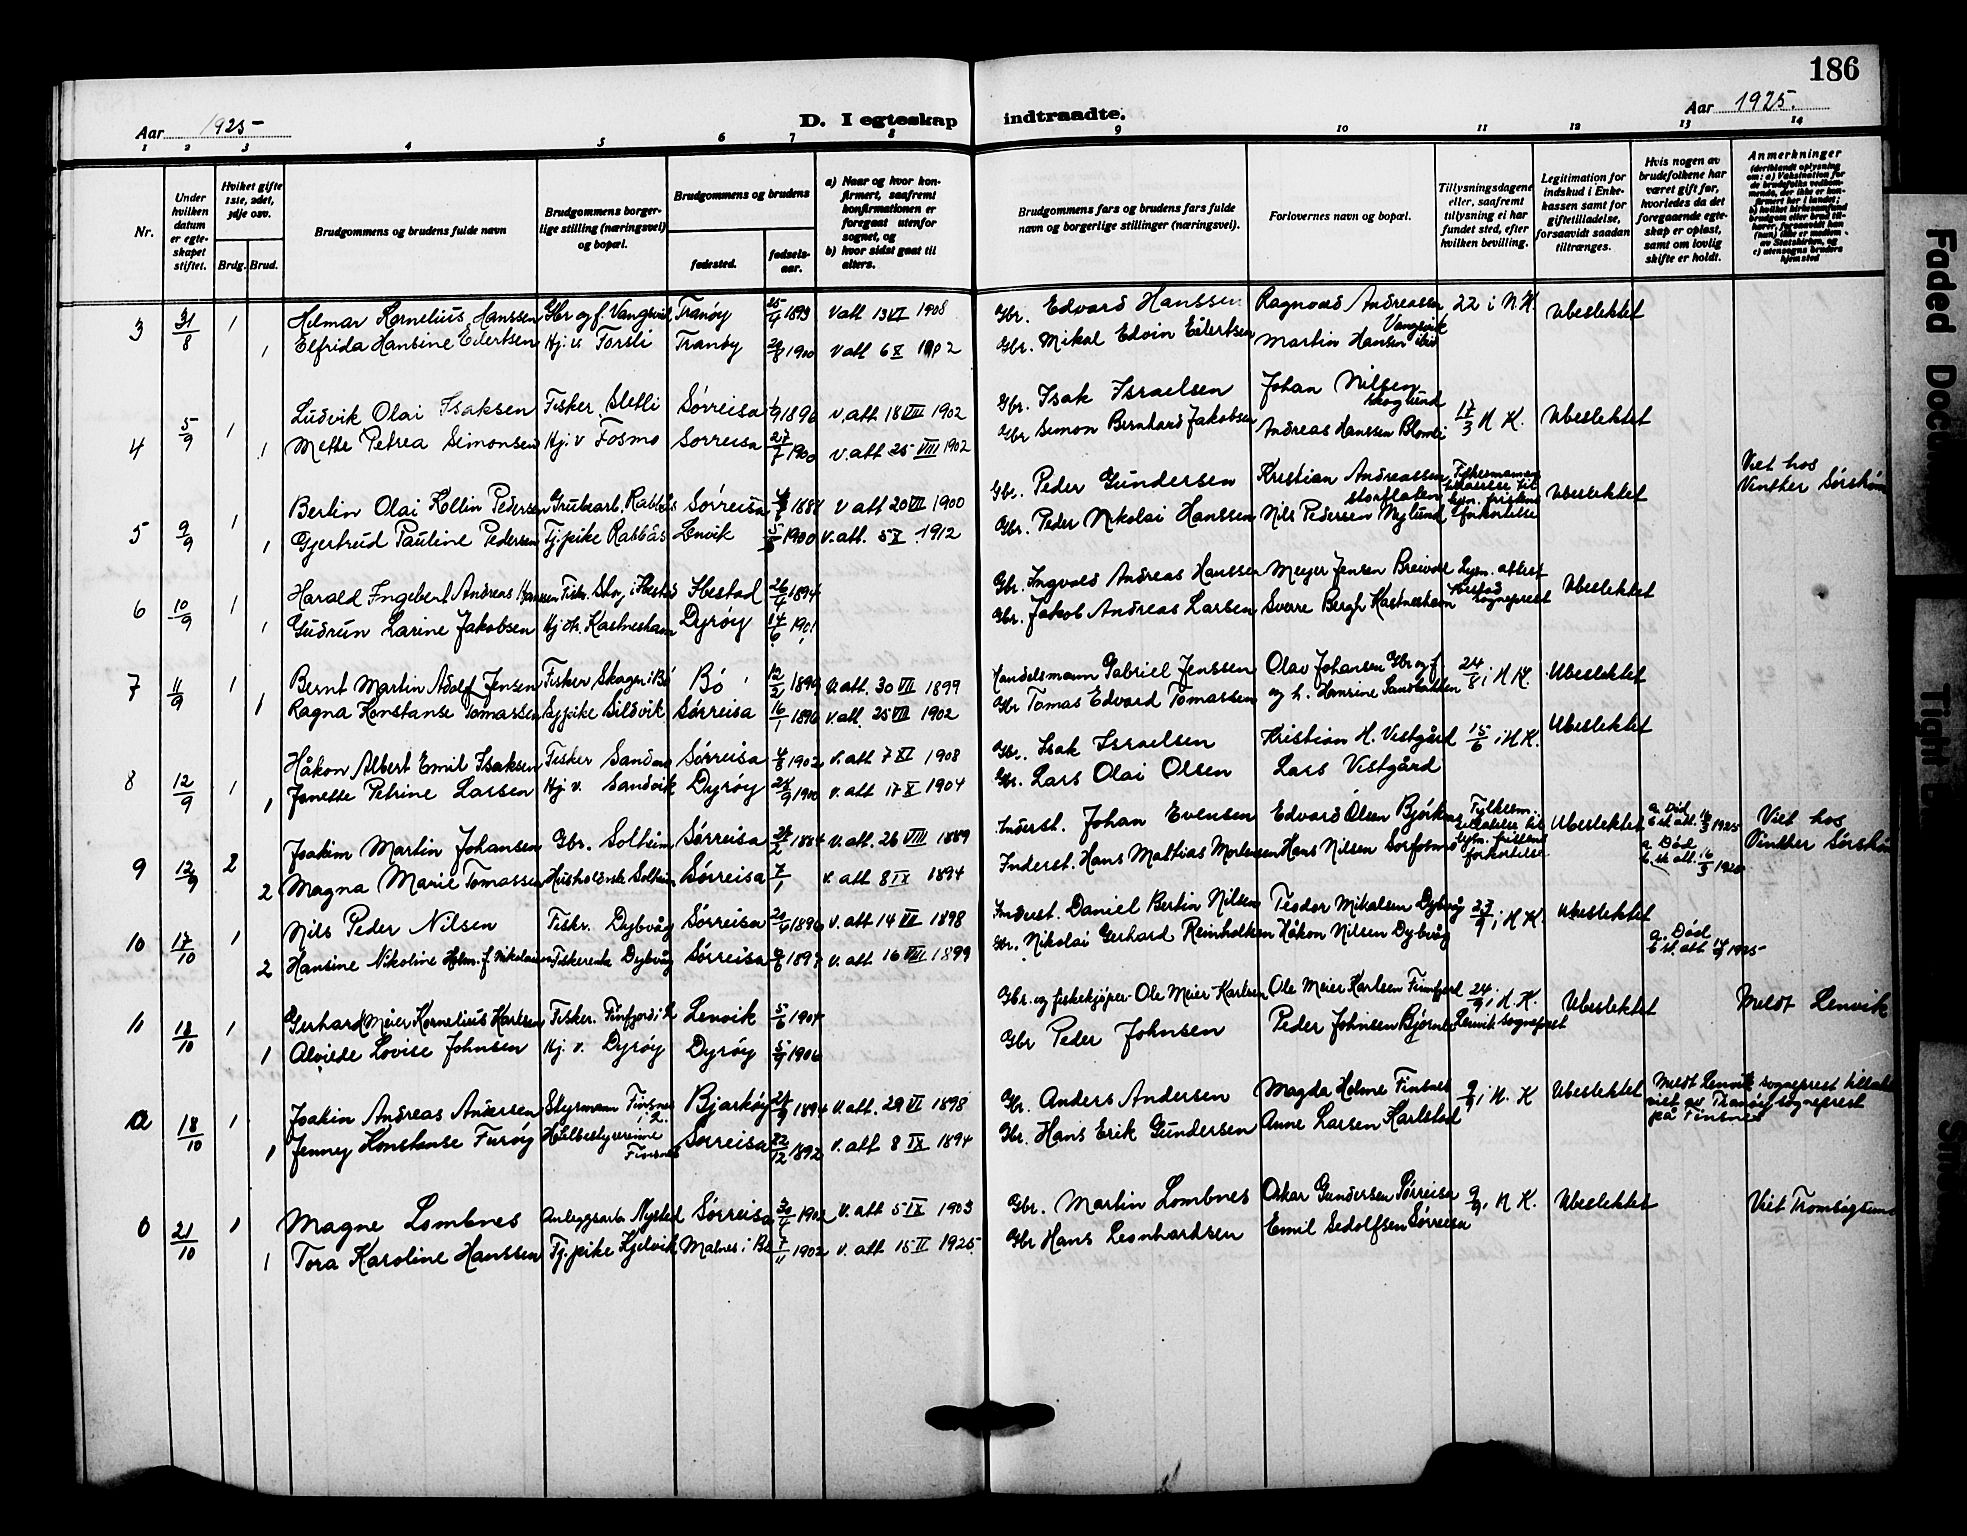 186
Aar 1925-
D. I egteskap indtraadte.
Aar 1925.
1 2 3 4 5 6 7 8 9 10 11 12 13 14
Nr.
Under hvilken datum er egteskapet stiftet.
Hvilket gifte 1ste, 2det, 3dje osv.
Brdg. Brud.
Brudgommens og brudens fulde navn
Brudgommens borgerlige stilling (næringsvei) og bopæl.
Brudgommens og brudens
fødested.
fødselsaar.
a) Naar og hvor konfirmert, saafremt konfirmationen er foregaat utenfor sognet, og
b) hvor sidst gaat til alters.
Brudgommens fars og brudens fars fulde navn og borgerlige stillinger (næringsvei).
Forlovernes navn og bopæl.
Tillysningsdagene eller, saafremt tillysning ei har fundet sted, efter hvilken bevilling.
Legitimation for indskud i Enkekassen samt for giftetilladelse, forsaavidt saadan tiltrænges.
Hvis nogen av brudefolkene har været gift før, hvorledes da det foregaaende egteskap er opløst, samt om lovlig skifte er holdt.
Anmerkninger
3 31/8 1 Hilmar Kornelius Hanssen Gbr og f. Vangsvik Tranøy 1893 v att 13 VI 1908 Gbr. Edvard Hanssen Ragnvald Andreassen Vangsvik 22 i N.K. Ubeslektet
1 Elfrida Hansine Eilertsen Hj. v Forsli Tranøy 1900 v att 6 X Gbr. Mikal Edvin Eilertsen Martin Hansen ibid
4 5/9 1 Ludvik Olai Isaksen Fisker Sletli Sørreisa 1896 v. att. 18 VIII 1902 Gbr. Isak Israelsen Johan Nilsen Skoglund 17/3 N K. Ubeslektet
1 Mette Petrea Simonsen Hj. v Fosmo Sørreisa 27/7 1900 v. att 25 VIII 1902 Gbr Simon Bernhard Jakobsen Andreas Hanssen Blomli
5 9/9 1 Berlin Olai Kollin Pedersen Grubearb. Rabbås Sørreisa v att 20 VII 1900 Gbr. Peder Gundersen Kristian Andreassen Storflaten Ubeslektet Viet hos Vinther
1 Gjertrud Pauline Pedersen Tj. pike Rabbås Lenvik 1900 v. att. 5 X 1912 Gbr. Peder Nikolai Hanssen Nils Pedersen Nylund
6 10/9 1 Harald Ingebert Andreas Hanssen Ibestad 26/4 1894 Gbr. Ingvald Andreas Hanssen Meyer Jensen Breivoll Lysn. attest Ibestad sogneprest Ubeslektet
1 Gudrun Larine Jakobsen Kastneshamn Dyrøy 14/6 1901 Gbr. Jakob Andreas Larsen Sverre Bergh Kastneshamn
7 11/9 1 Bernt Martin Adolf Jensen Fisker Skagen i Bø Bø 12/2 v. att. 30 VII 1899 Handelsmann Gabriel Jenssen Olav Johansen Gbr og f. 24/8 i N K. Ubeslektet
1 Ragna Konstanse Tomassen Sypike Sildvik Sørreisa 16/1 1890 v. att. 25 VIII 1902 Gbr Tomas Edvard Tomassen og h. Henrine Sandbakken Ubeslektet
8 12/9 1 Håkon Albert Emil Isaksen Fisker Sandvik Sørreisa 4/8 1902 v. att 7 XI 1908 Gbr. Isak Israelsen Kristian H. Vestgård 15/6 i N K.
1 Jenette Petrine Larsen Hj. v. Sandvik Dyrøy 1900 v. att 17 X 1904 Gbr. Lars Olai Olsen Lars Vestgård
9 12/9 2 Joakim Martin Johansen Gbr. Solheim Sørreisa 1864 v. att. 26 VIII 1889 Inderst. Johan Evensen Edvard Olsen Bjørknes Ubeslektet a. Død 1925 Viet hos Vinther
2 Magna Marie Tomassen Solheim Sørreisa 7/1 v. att 8 IX 1894 Inderst. Hans Mathias Mortensen Hans Nilsen Sørfosmo a. Død 16/3 1920
10 17/10 1 Nils Peder Nilsen Fiskr. Dybvåg Sørreisa 1896 v. att 14 VII 1898 Inderst. Daniel Bertin Nilsen Teodor Mikalsen Dybvåg 27/9 i N K. Ubeslektet
2 Hansine Nikoline Fiskerenke Dybvåg Sørreisa 1897 v. att 16 VIII 1899 Gbr. Nikolai Gerhard Reinholtsen Håkon Nilsen Dybvåg a. Død 1925-
11 18/10 1 Gerhard Meier Kornelius Karlsen Fisker. Finfjord i L Lenvik 5/6 1904 Gbr. og fiskekjøper Ole Meier Karlsen Ole Meier Karlsen Finfjord 24/9 i N. K. Lenvik sogneprest Ubeslektet Meldt Lenvik
1 Alvilde Lovise Johnsen Hj. v. Dyrøy Dyrøy 5/9 1906 Gbr Peder Johnsen Peder Johnsen
12 18/10 1 Joakin Andreas Andersen Styrmann Finsnes i L. Bjarkøy 1894 v. att. 29 VI 1898 Gbr. Anders Andersen Magda Holme Finsnes 9/9 i N. K Ubeslektet Meldt Lenvik sogneprest viet av Tranøy sogneprest på Finsnes
1 Jenny Konstanse Furøy Hotelbestyrerinne Finsnes Sørreisa 22/12 1892 v. att 8 IX 1894 Gbr. Hans Erik Gundersen Anne Larsen Karlstad
21/10 1 Magne Lombnes Anleggsarb. Nysted Sørreisa 30/4 1902 v. att 5 IX 1903 Gbr. Martin Lombnes Oskar Gundersen Sørreisa 9/9 i N K. Ubeslektet Viet Tromsøysund
1 Tora Karoline Hanssen Tj. pike Kjelvik Malnes i Bø 7/11 1902 v. att 15 II 1925. Gbr Hans Leonhardsen Emil Sedolfsen Sørreisa
Faded Docu
Tight